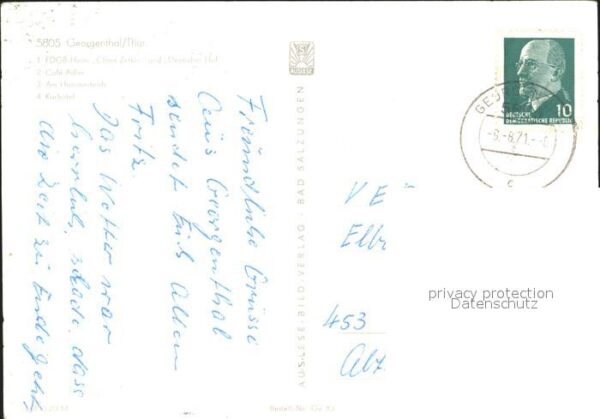 5805 Georgenthal/Thür.
1 FDGB-Heim „Clara Zetkin" und „Deutscher Hof"
2 Café Adler
3 Am Hammerteich
4 Kurhotel
Freundliche Grüsse
aus Georgenthal
sendet Euch Allen
Fritz.
Das Wetter war
herrlich, schade, dass
die Zeit zu Ende geht.
AUSLESE-BILD-VERLAG - BAD SALZUNGEN
AUSLESE
10
DEUTSCHE
DEMOKRATISCHE REPUBLIK
-6.-8.71.-
c
VE
Elbe
453
privacy protection
Datenschutz
Bestell-Nr.